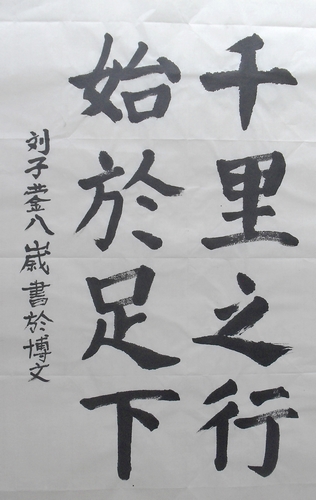 千里之行
始於足下
刘子蓥八歲書於博文